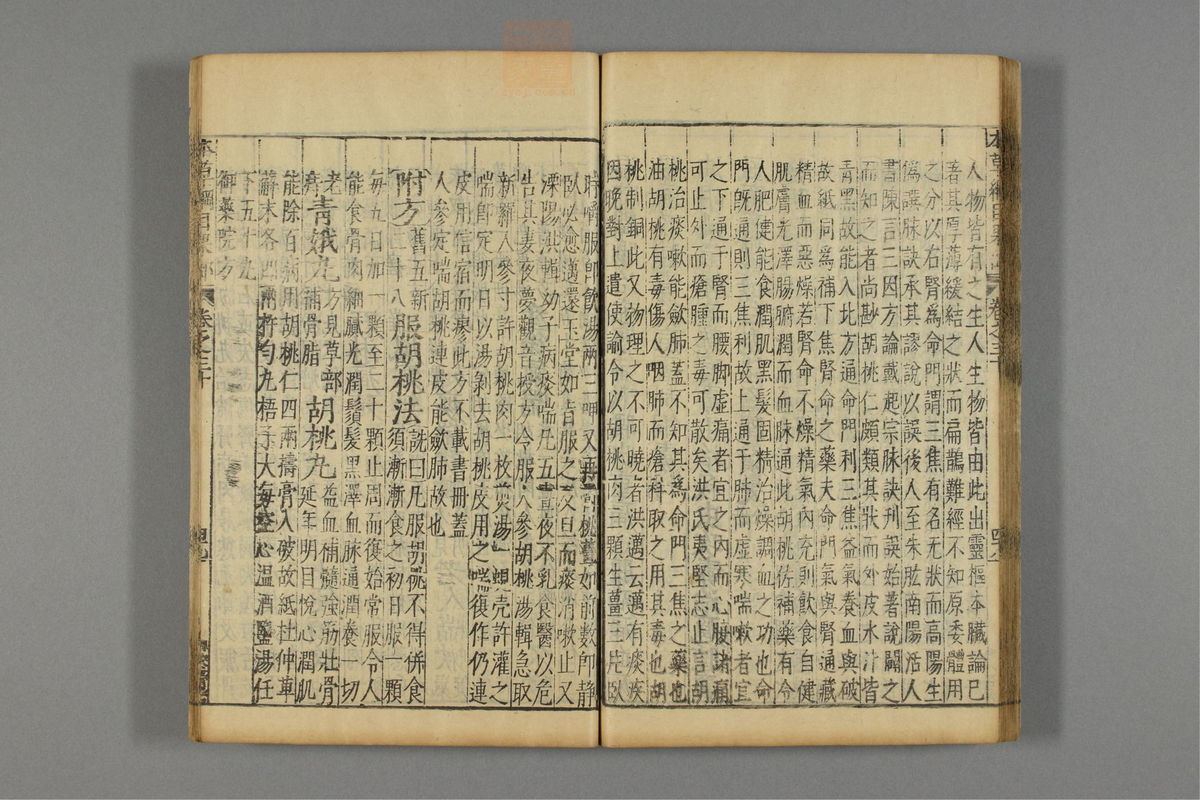 本草綱目果部 卷之三十
人物皆有之生人生物皆由此出靈樞本臟論已
著其厚薄緩結之狀而扁鵲難經不知原委體用
之分以右腎為命門謂三焦有名无狀而高陽生
偽譔脉訣承其謬說以誤後人至朱肱南陽活人
書陳言三因方論戴起宗脉訣刊誤始著說闢之
而知之者尚尠胡桃仁頗類其狀而外皮水汁皆
青黑故能入此方通命門利三焦益氣養血與破
故紙同為補下焦腎命之藥夫命門氣與腎通藏
精血而惡燥若腎命不燥精氣內充則飲食自健
肌膚光澤腸腑潤而血脉通此胡桃佐補藥有令
人肥健能食潤肌黑髮固精治燥調血之功也命
門既通則三焦利故上通于肺而虛寒喘嗽者宜
之下通于腎而腰脚虛痛者宜之內而心腹諸痛
可止外而瘡腫之毒可散矣洪氏夷堅志止言胡
桃治痰嗽能歛肺蓋不知其為命門三焦之藥也
油胡桃有毒傷人咽肺而瘡科取之用其毒也胡
桃制銅此又物理之不可曉者洪邁云邁有痰疾
因晚對上遣使諭令以胡桃肉三顆生薑三片臥
時嚼服即飲湯兩三呷又再嚼桃薑如前數即靜
臥必愈邁還玉堂如旨服之及旦而痰消嗽止又
溧陽洪輯幼子病痰喘凡五晝夜不乳食醫以危
告其妻夜夢觀音授方令服人參胡桃湯輯急取
新羅人參寸許胡桃肉一枚煎湯一蜆壳許灌之
喘即定明日以湯剝去胡桃皮用之喘復作仍連
皮用信宿而瘳此方不載書冊蓋
人參定喘胡桃連皮能歛肺故也
附方 舊五新二十八 服胡桃法 詵曰凡服胡桃不得併食須漸漸食之初日服一顆
每五日加一顆至二十顆止周而復始常服令人
能食骨肉細膩光潤鬚髮黑澤血脉通潤養一切
老
青娥丸 方見草部補骨脂 胡桃丸 益血補髓強筋壯骨延年明目悅心潤肌
能除百病用胡桃仁四兩擣膏入破故紙杜仲萆
薢末各四兩杵勻丸梧子大每空心溫酒鹽湯任
下五十丸
御藥院方
本草綱目果部 卷之三十